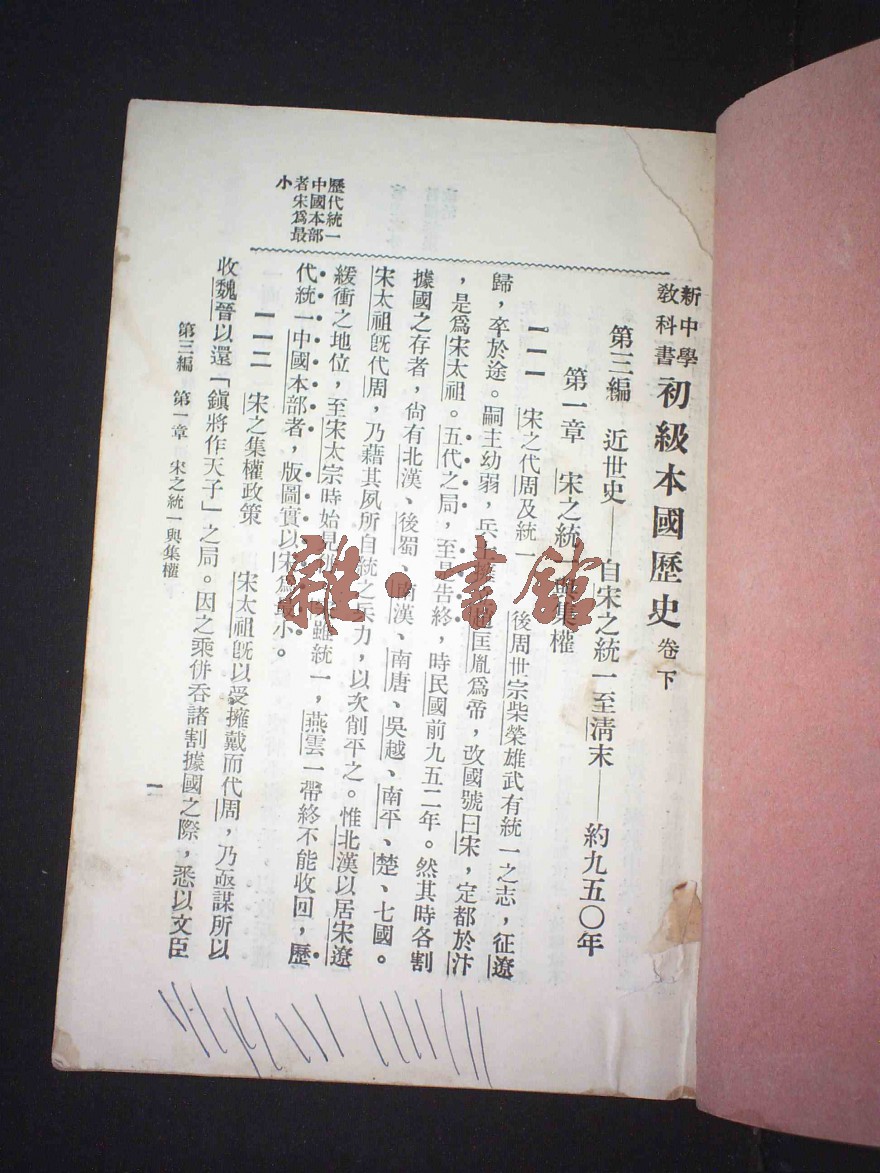 新中學教科書初級本國歷史卷下
第三編　近世史——自宋之統一至清末——約九五〇年
第一章　宋之統一與集權
一一一　宋之代周及統一　後周世宗柴榮雄武有統一之志，征遼
歸，卒於途。嗣主幼弱，兵匡胤爲帝，改國號曰宋，定都於汴
，是爲宋太祖。五代之局，至是告終，時民國前九五二年。然其時各割
據國之存者，尙有北漢、後蜀、南漢、南唐、吳越、南平、楚、七國。
宋太祖旣代周，乃藉其夙所自統之兵力，以次削平之。惟北漢以居宋遼
緩衝之地位，至宋太宗時始見雖統一，燕雲一帶終不能收回，歷
代統一中國本部者，版圖實以宋爲最小。
歷代統一
中國本部
者宋爲最
小
一一二　宋之集權政策　宋太祖旣以受擁戴而代周，乃亟謀所以
收魏晉以還「鎭將作天子」之局。因之乘併吞諸割據國之際，悉以文臣
第三編　第一章　宋之統一與集權
一
雜·書館